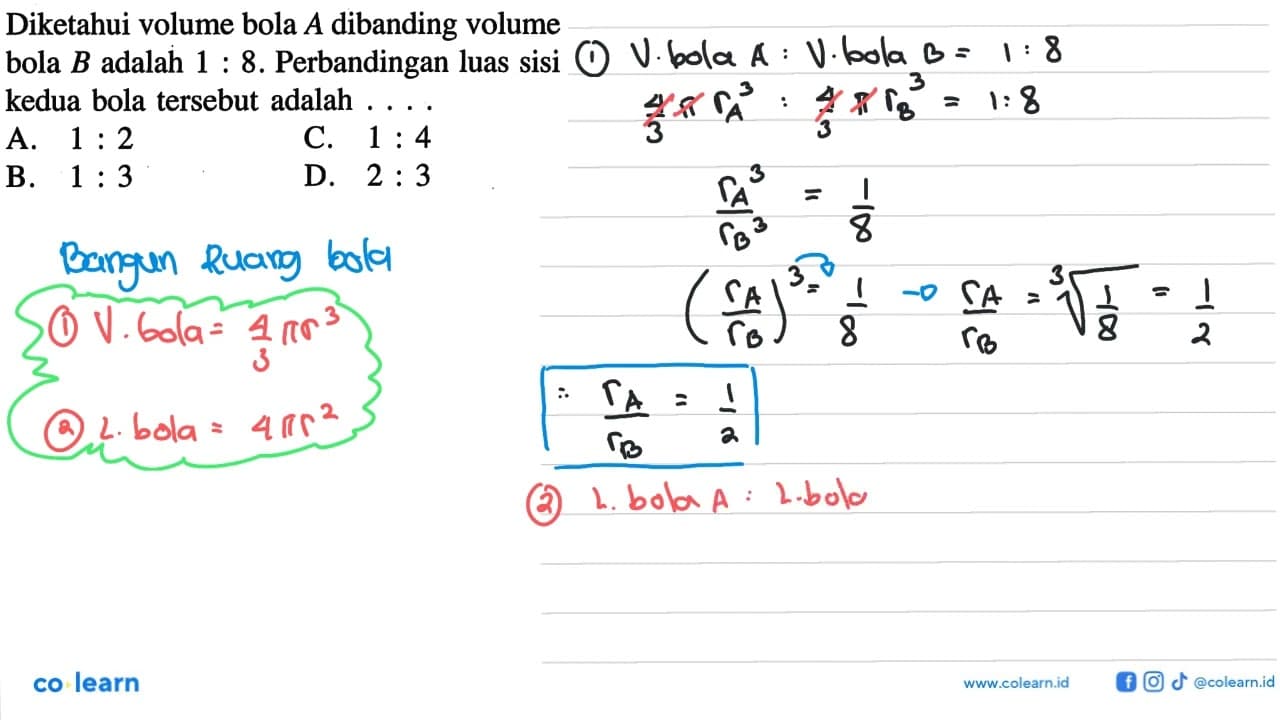 Diketahui volume bola A dibanding volume
bola B adalah 1 : 8. Perbandingan luas sisi
kedua bola tersebut adalah . . . .
A. 1 : 2 C. 1 : 4
B. 1 : 3 D. 2 : 3
Bangun Ruang bola
① V. bola = 4/3 πr³
② L. bola = 4πr²
① V. bola A : V. bola B = 1 : 8
4/3 π r_A³ : 4/3 π r_B³ = 1 : 8
r_A³/r_B³ = 1/8
(r_A/r_B)³ = 1/8 → r_A/r_B = ³√(1/8) = 1/2
∴ r_A/r_B = 1/2
② L. bola A : L. bola
co learn
www.colearn.id @colearn.id